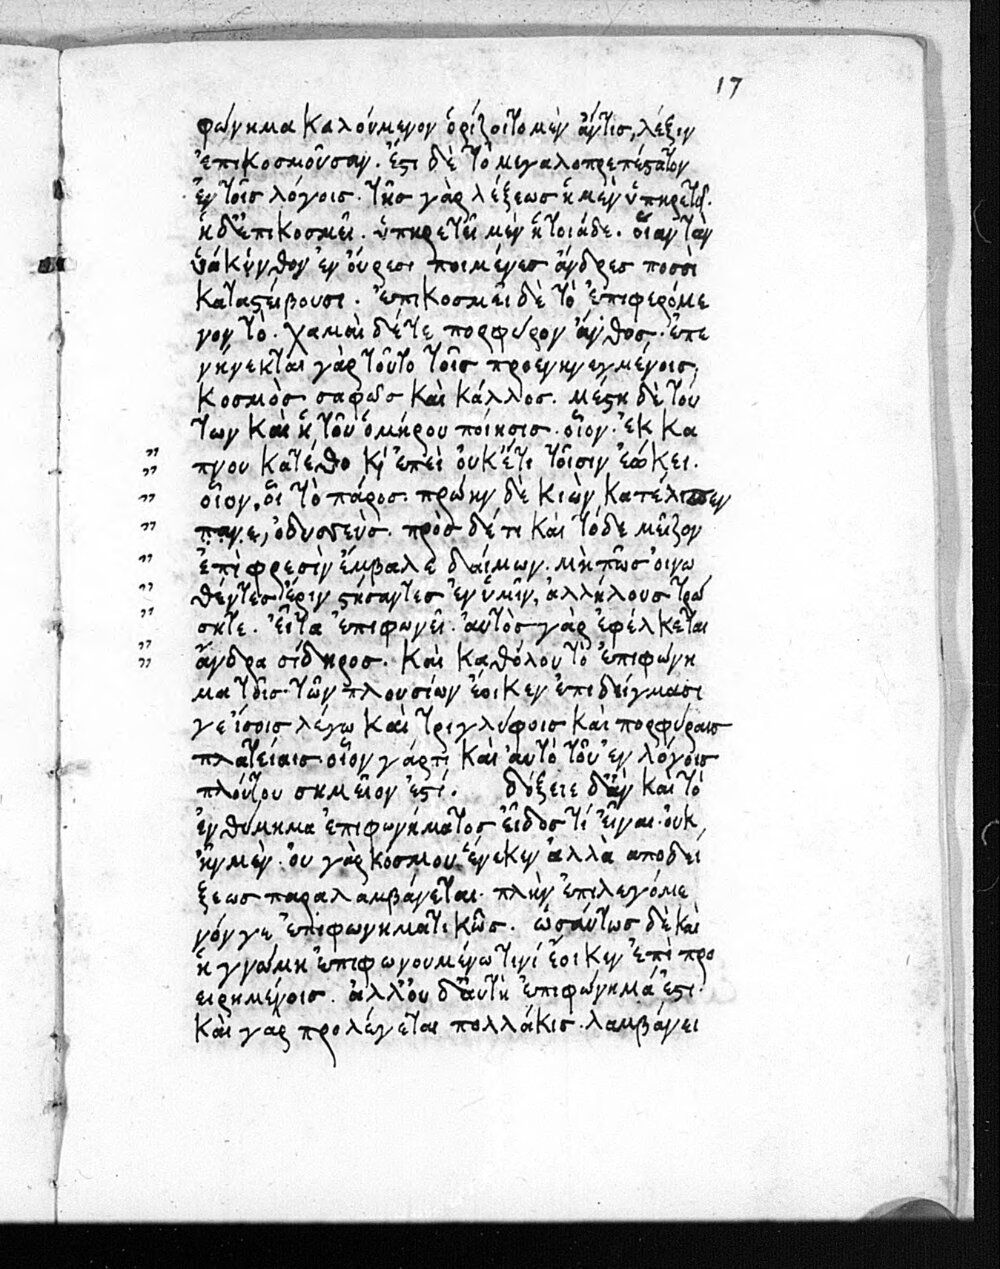 17
φώνημα καλούμενον ὁρίζοιτο μὲν ἄντις, λέξιν
ἐπικοσμοῦσαν. ἔστι δὲ τὸ μεγαλοπρεπέστατον
ἐν τοῖς λόγοις. τῆς γὰρ λέξεως ἡ μὲν ὑπηρετεῖ.
ἡ δ' ἐπικοσμεῖ. ὑπηρετεῖ μὲν ἡ τοιάδε. οἵαν τὰν
ὑάκινθον ἐν οὔρεσι ποιμένες ἄνδρες ποσσὶ
καταστείβουσι. ἐπικοσμεῖ δὲ τὸ ἐπιφερόμε
νον τὸ. χαμαὶ δέ τε πορφύρον ἄνθος. ἐπε
νήνεκται γὰρ τοῦτο τοῖς προενηνεγμένοις,
κοσμὸς σαφῶς καὶ κάλλος. μέστη δὲ τού
των καὶ ἡ τοῦ ὁμήρου ποίησις. οἷον. ἐκ κα
πνου κατέθηκ' ἐπεὶ οὐκέτι τοῖσιν ἐῴκει.
οἷον, οἷ τὸ πάρος. πρώην δὲ κιὼν κατέλιπεν
ὀδυσσεὺς. πρὸς δέ τι καὶ τόδε μεῖζον
ἐπὶ φρεσὶν ἔμβαλε δαίμων. μὴ πῶς οἰνω
θέντες ἔριν στήσαντες ἐν ὑμῖν, ἀλλήλους τρώ
σητε. εἶτα ἐπιφωνεῖ. αὐτὸς γὰρ ἐφέλκεται
ἄνδρα σίδηρος. καὶ καθόλου τὸ ἐπιφώνη
μα τοῖς τῶν πλουσίων ἔοικεν ἐπιδείγμασι
γείσοις λέγω καὶ τριγλύφοις καὶ πορφύραις
πλατείαις. οἷον γάρ τι καὶ αὐτὸ τοῦ ἐν λόγοις
πλούτου σημεῖον ἐστί. δόξειε δ' ἂν καὶ τὸ
ἐνθύμημα ἐπιφωνήματος εἶδος τί εἶναι. οὐκ
ὂν μὲν. οὐ γὰρ κόσμου ἕνεκεν ἀλλὰ αποδεί
ξεως παραλαμβάνεται. πλὴν ἐπιλεγόμε
νόν γε ἐπιφωνηματικῶς. ὡσαύτως δὲ καὶ
ἡ γνώμη ἐπιφωνουμένω τινί ἔοικεν ἐπὶ προ
ειρημένοις. ἀλλ' οὐ δ' αὐτὴ ἐπιφώνημά ἐστι.
καὶ γὰρ προλέγεται πολλάκις. λαμβάνει